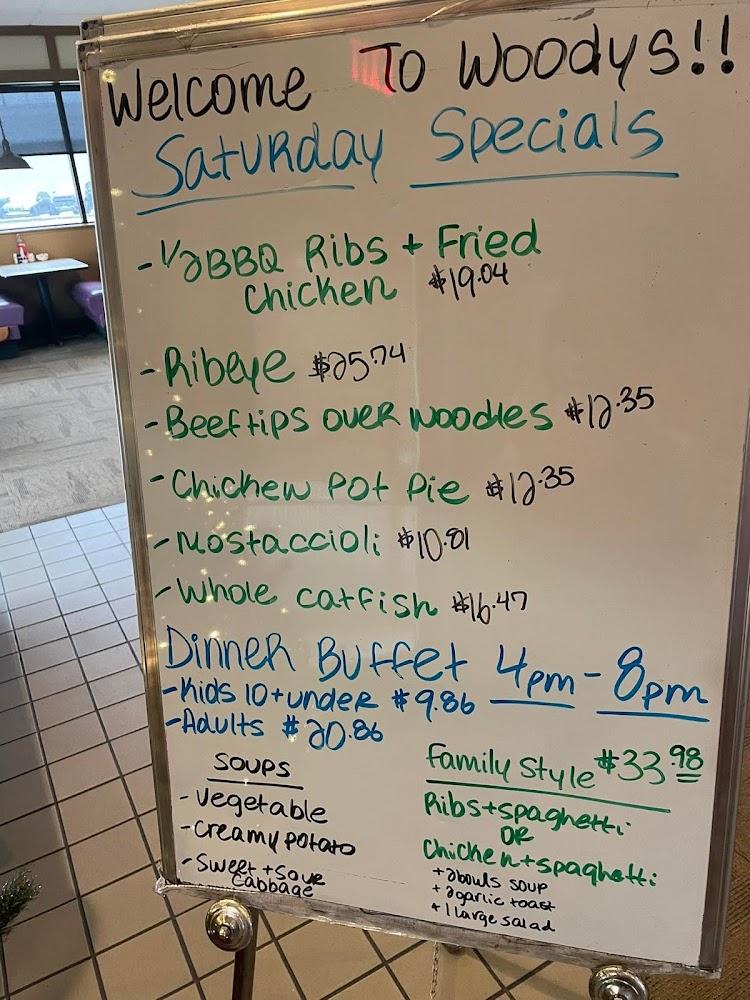 Welcome To Woodys!!
Saturday Specials
- 1/2 BBQ Ribs + Fried
Chicken $19.04
- Ribeye $25.74
- Beef tips over noodles $12.35
- Chicken Pot Pie $12.35
- Mostaccioli $10.81
- Whole catfish $16.47
Dinner Buffet 4pm - 8pm
- Kids 10 + under $9.86
- Adults $20.86
Soups
- vegetable
- creamy potato
- sweet + sour
cabbage
Family Style $33.98
Ribs + spaghetti
OR
Chicken + spaghetti
+ 2 bowls soup
+ 2 garlic toast
+ 1 large salad